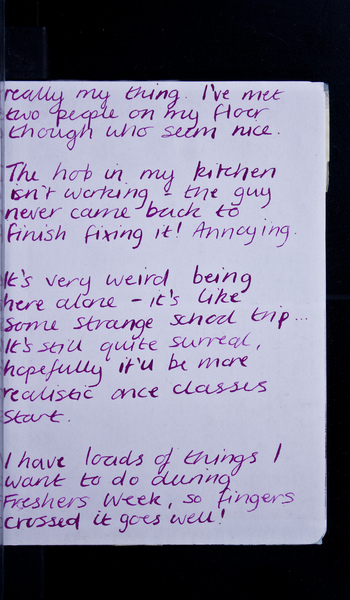 really my thing. I've met
two people on my floor
though who seem nice.
The hob in my kitchen
isn't working - the guy
never came back to
finish fixing it! Annoying.
It's very weird being
here alone - it's like
some strange school trip...
It's still quite surreal,
hopefully it'll be more
realistic once classes
start.
I have loads of things I
want to do during
Freshers Week, so fingers
crossed it goes well!